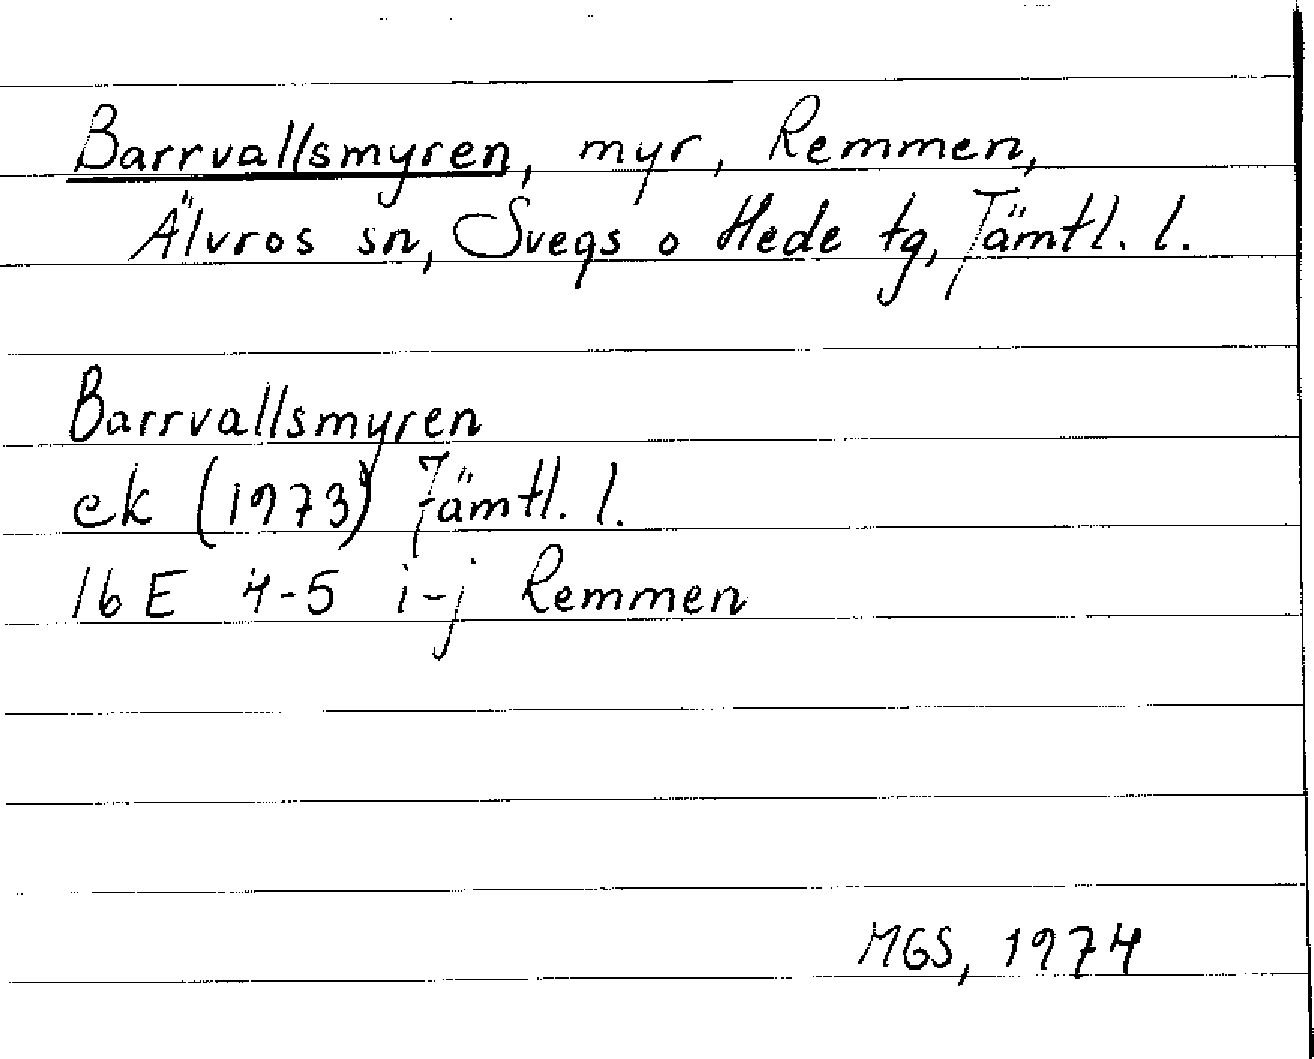 Barrvallsmyren, myr, Remmen,
Älvros sn, Svegs o Hede tg, Jämtl. l.
Barrvallsmyren
ek (1973) Jämtl. l.
16 E 4-5 i-j Remmen
MGS, 1974